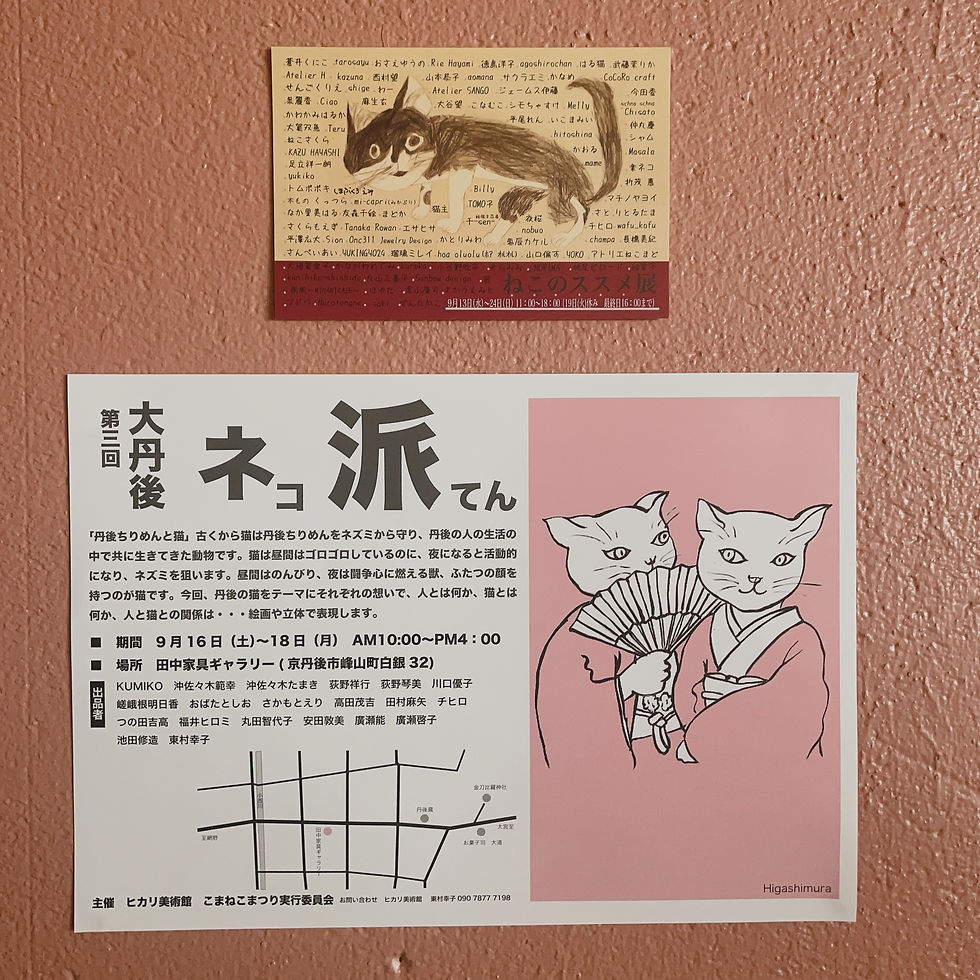 蒼井くにこ tarosayu おさえゆうの Rie Hayami 徳島洋子 agoshirochan はる猫 武藤茉りか
Atelier H kazuna 西村望 山本恭子 aomana サクラエミ かなめ CoCoRo craft
せんごくりえ shige わー Atelier SANGO ジェームス伊藤 今田香
泉麗香 Ciao 麻生玄 大谷望 こなむこ シモちゃすけ Melly schna schna Chisato
かわかみはるか 平尾れん いこまみい 仲丸慶
大鷲双魚 Teru hitoshina シャム
ねこさくら かおる Masala
KAZU HAYASHI mame 幸ネコ
足立祥一朗 折茂恵
yukiko Billy マチノヤヨイ
トムポポキ TOMO子 さと りとるたま
木もの くっつら mi-capri(みかぷり) 猫主 夜桜 チヒロ wafu_kafu
なか里美はる 友森千絵 まどか 千-sen- nobuo champa 長橋美紀
さくらもえぎ Tanaka Rowan エサヒサ
平澤広大 Sion Onc311 Jewelry Design かとりみわ 亀屋カケル
さんぺいあい YUKING4024 瑠璃ミレイ hoa aluolu 山口倫可 YOKO アトリエねこまど
ねこのススメ展
9月13日(水)~24日(日) 11:00~18:00 (19日(火)休み 最終日16:00まで)
第三回
大丹後
ネコ派てん
「丹後ちりめんと猫」古くから猫は丹後ちりめんをネズミから守り、丹後の人の生活の
中で共に生きてきた動物です。猫は昼間はゴロゴロしているのに、夜になると活動的
になり、ネズミを狙います。昼間はのんびり、夜は闘争心に燃える獣、ふたつの顔を
持つのが猫です。今回、丹後の猫をテーマにそれぞれの想いで、人とは何か、猫とは
何か、人と猫との関係は・・・絵画や立体で表現します。
■ 期間 9月16日(土)〜18日(月) AM10:00〜PM4:00
■ 場所 田中家具ギャラリー(京丹後市峰山町白銀32)
出品者
KUMIKO 沖佐々木範幸 沖佐々木たまき 荻野祥行 荻野琴美 川口優子
嵯峨根明日香 おばたとしお さかもとえり 高田茂吉 田村麻矢 チヒロ
つの田吉高 福井ヒロミ 丸田智代子 安田敦美 廣瀬能 廣瀬啓子
池田修造 東村幸子
小西川
至網野
田中家具ギャラリー
丹後蔵
金刀比羅神社
大宮至
お菓子司 大道
主催 ヒカリ美術館 こまねこまつり実行委員会 お問い合わせ ヒカリ美術館 東村幸子 090 7877 7198
Higashimura